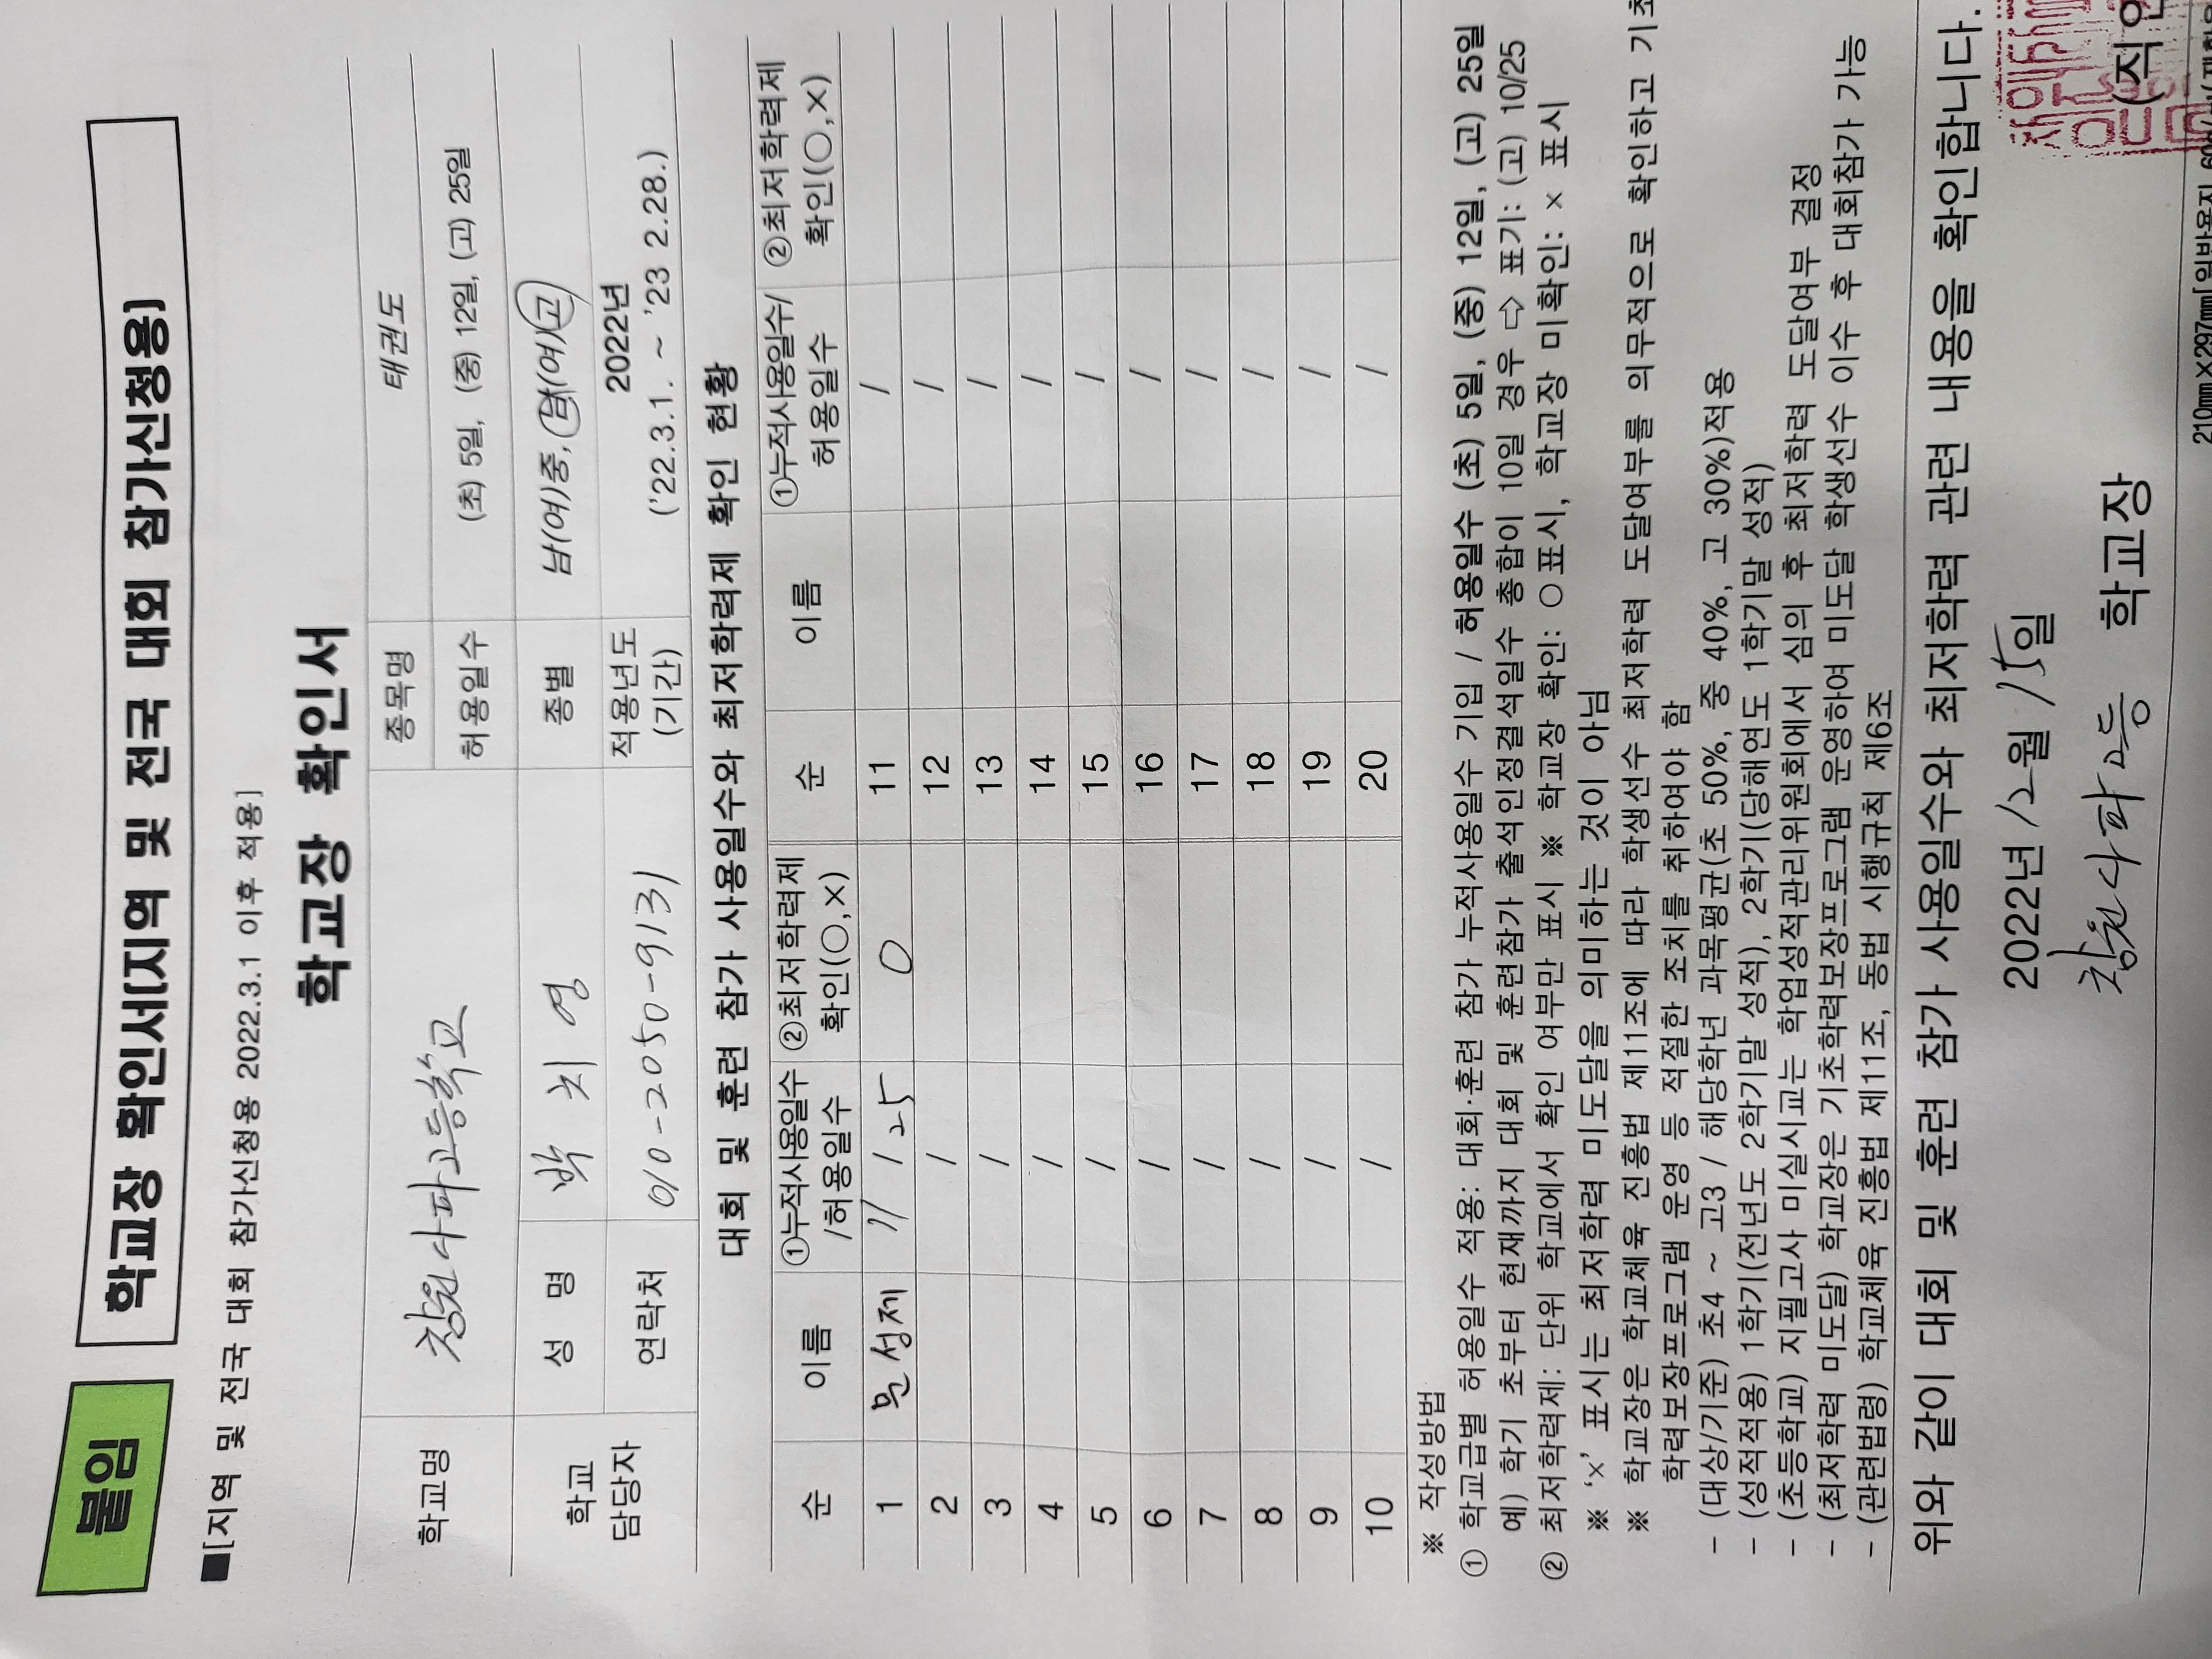 붙임
학교장 확인서[지역 및 전국 대회 참가신청용]
■[지역 및 전국 대회 참가신청용 2022.3.1 이후 적용]
학교장 확인서
학교명 창원사파고등학교 종목명 태권도
허용일수 (초) 5일, (중) 12일, (고) 25일
학교 담당자 성 명 박 치 영 종별 남(여)중, 남(여)고
연락처 010-2050-9131 적용년도 (기간) 2022년 ('22.3.1. ~ '23 2.28.)
대회 및 훈련 참가 사용일수와 최저학력제 확인 현황
순 이름 ①누적사용일수 /허용일수 ②최저학력제 확인(○,×) 순 이름 ①누적사용일수/ 허용일수 ②최저학력제 확인(○,×)
1 문성제 11 / 25 O 11 /
2 / 12 /
3 / 13 /
4 / 14 /
5 / 15 /
6 / 16 /
7 / 17 /
8 / 18 /
9 / 19 /
10 / 20 /
※ 작성방법
① 학교급별 허용일수 적용: 대회·훈련 참가 누적사용일수 기입 / 허용일수 (초) 5일, (중) 12일, (고) 25일
예) 학기 초부터 현재까지 대회 및 훈련참가 출석인정결석일수 총합이 10일 경우 ⇨ 표기: (고) 10/25
② 최저학력제: 단위 학교에서 확인 여부만 표시 ※ 학교장 확인: ○표시, 학교장 미확인: × 표시
※ '×' 표시는 최저학력 미도달을 의미하는 것이 아님
※ 학교장은 학교체육 진흥법 제11조에 따라 학생선수 최저학력 도달여부를 의무적으로 확인하고 기초
학력보장프로그램 운영 등 적절한 조치를 취하여야 함
- (대상/기준) 초4 ~ 고3 / 해당학년 과목평균(초 50%, 중 40%, 고 30%)적용
- (성적적용) 1학기(전년도 2학기말 성적), 2학기(당해연도 1학기말 성적)
- (초등학교) 지필고사 미실시교는 학업성적관리위원회에서 심의 후 최저학력 도달여부 결정
- (최저학력 미도달) 학교장은 기초학력보장프로그램 운영하여 미도달 학생선수 이수 후 대회참가 가능
- (관련법령) 학교체육 진흥법 제11조, 동법 시행규칙 제6조
위와 같이 대회 및 훈련 참가 사용일수와 최저학력 관련 내용을 확인합니다.
2022년 12월 15일
창원사파고등 학교장 (직인
210㎜×297㎜[일반용지